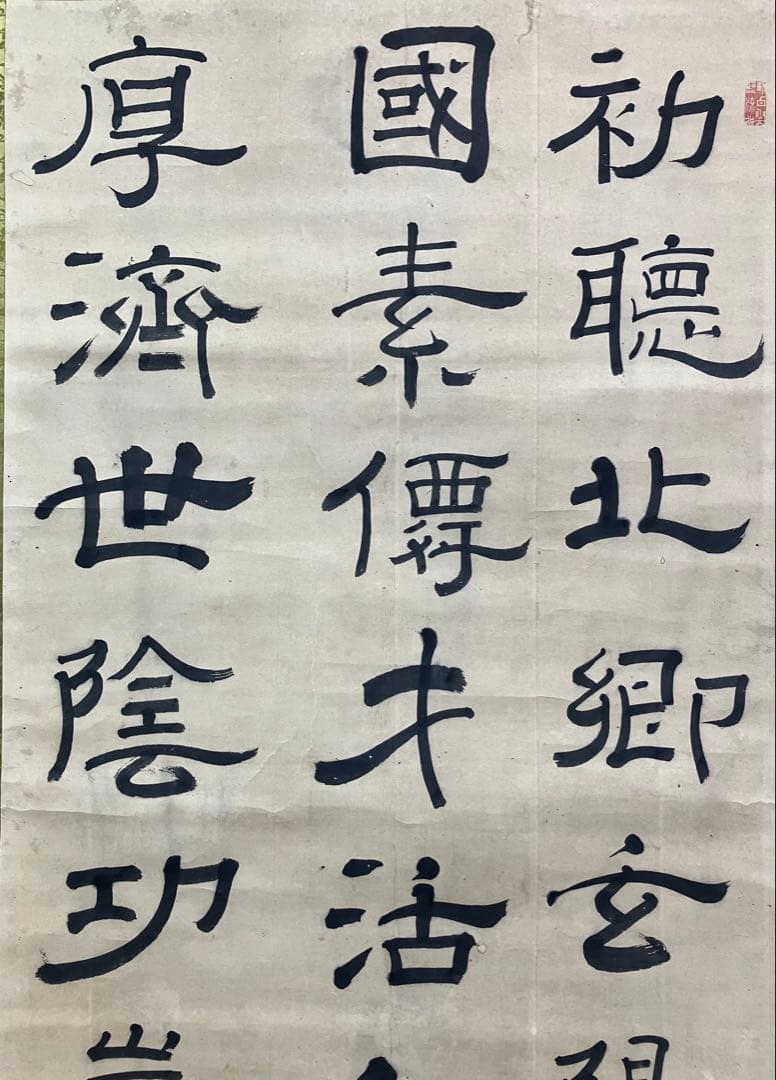 初聴北鄉玄
國素僊才活
厚濟世陰功